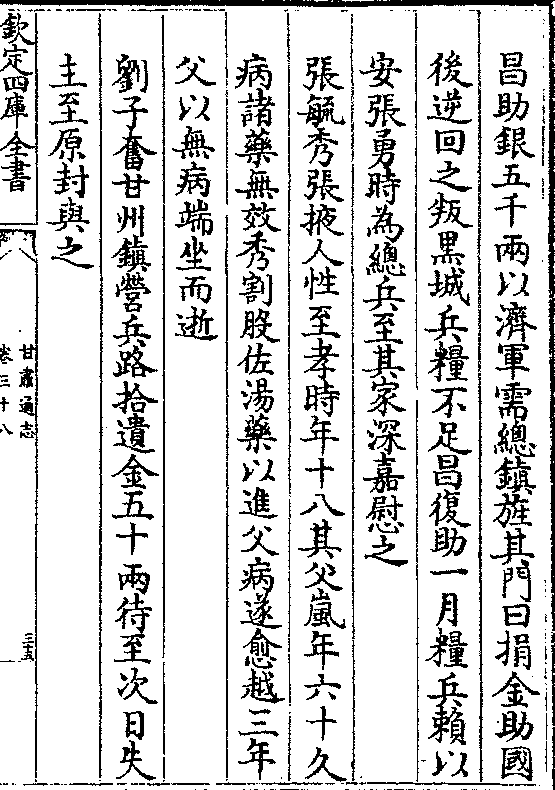 昌助銀五千兩以濟軍需總鎮旌其門曰捐金助國
後逆回之叛黒城兵糧不足昌復助一月糧兵賴以
安張勇時為總兵至其家深嘉慰之
張毓秀張掖人性至孝時年十八其父嵐年六十久
病諸藥無效秀割股佐湯藥以進父病遂愈越三年
父以無病端坐而逝
劉子奮甘州鎮營兵路拾遺金五十兩待至次日失
主至原封與之
欽定四庫全書
甘肅通志
卷三十八
三五